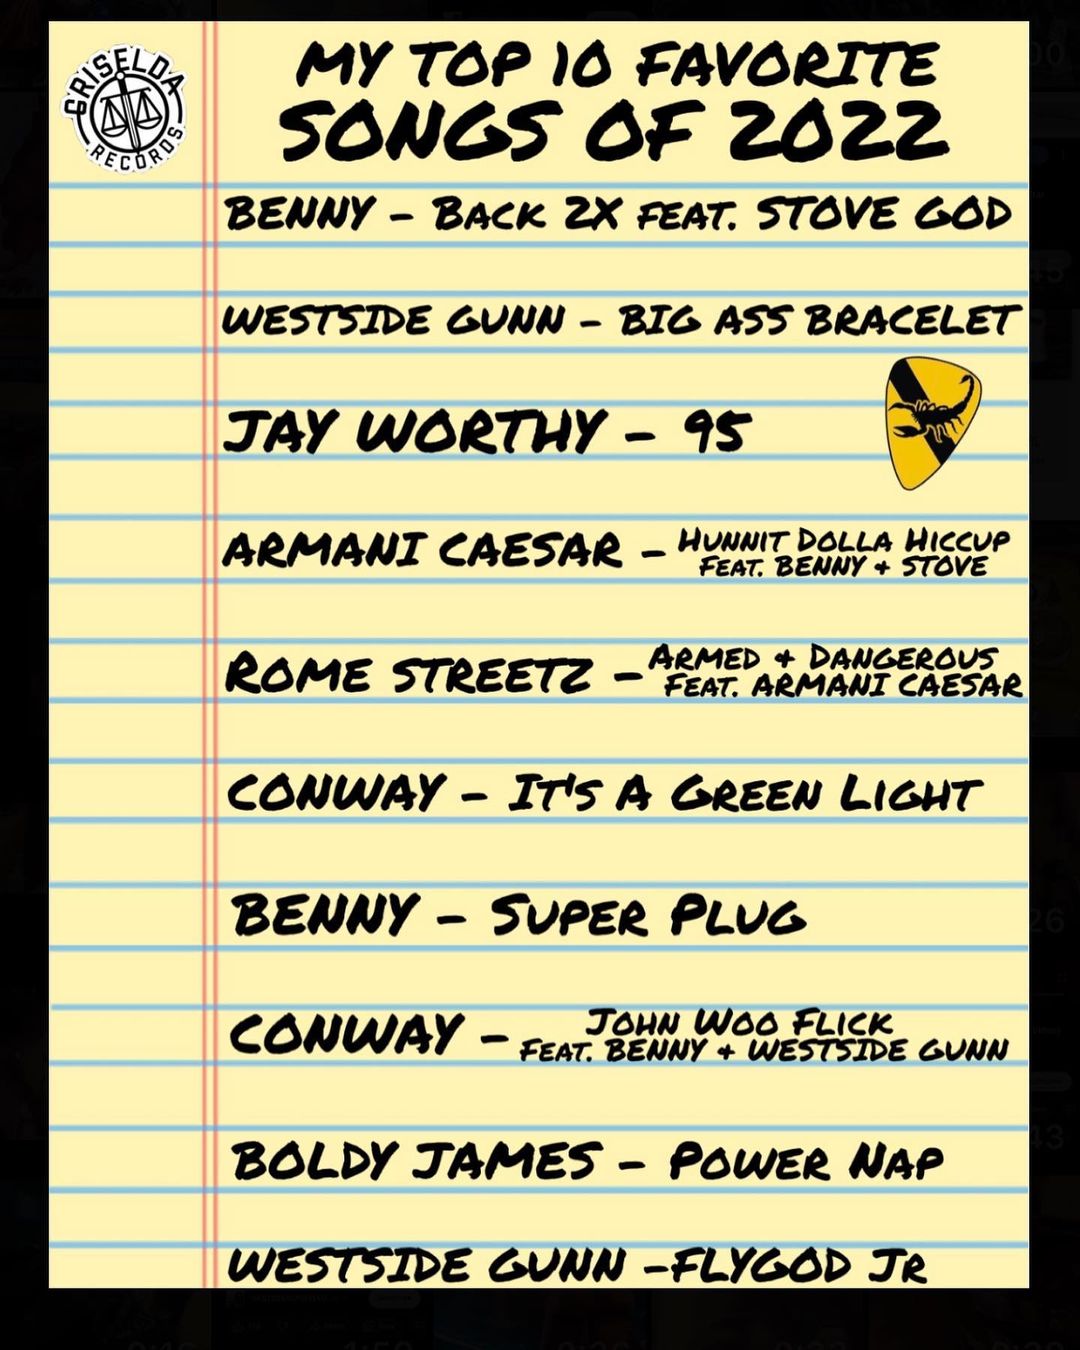 GRISELDA
RECORDS
MY TOP 10 FAVORITE
SONGS OF 2022
BENNY - BACK 2X FEAT. STOVE GOD
WESTSIDE GUNN - BIG ASS BRACELET
JAY WORTHY - 95
ARMANI CAESAR - HUNNIT DOLLA HICCUP
FEAT. BENNY + STOVE
ROME STREETZ - ARMED + DANGEROUS
FEAT. ARMANI CAESAR
CONWAY - IT'S A GREEN LIGHT
BENNY - SUPER PLUG
CONWAY - JOHN WOO FLICK
FEAT. BENNY + WESTSIDE GUNN
BOLDY JAMES - POWER NAP
WESTSIDE GUNN -FLYGOD JR